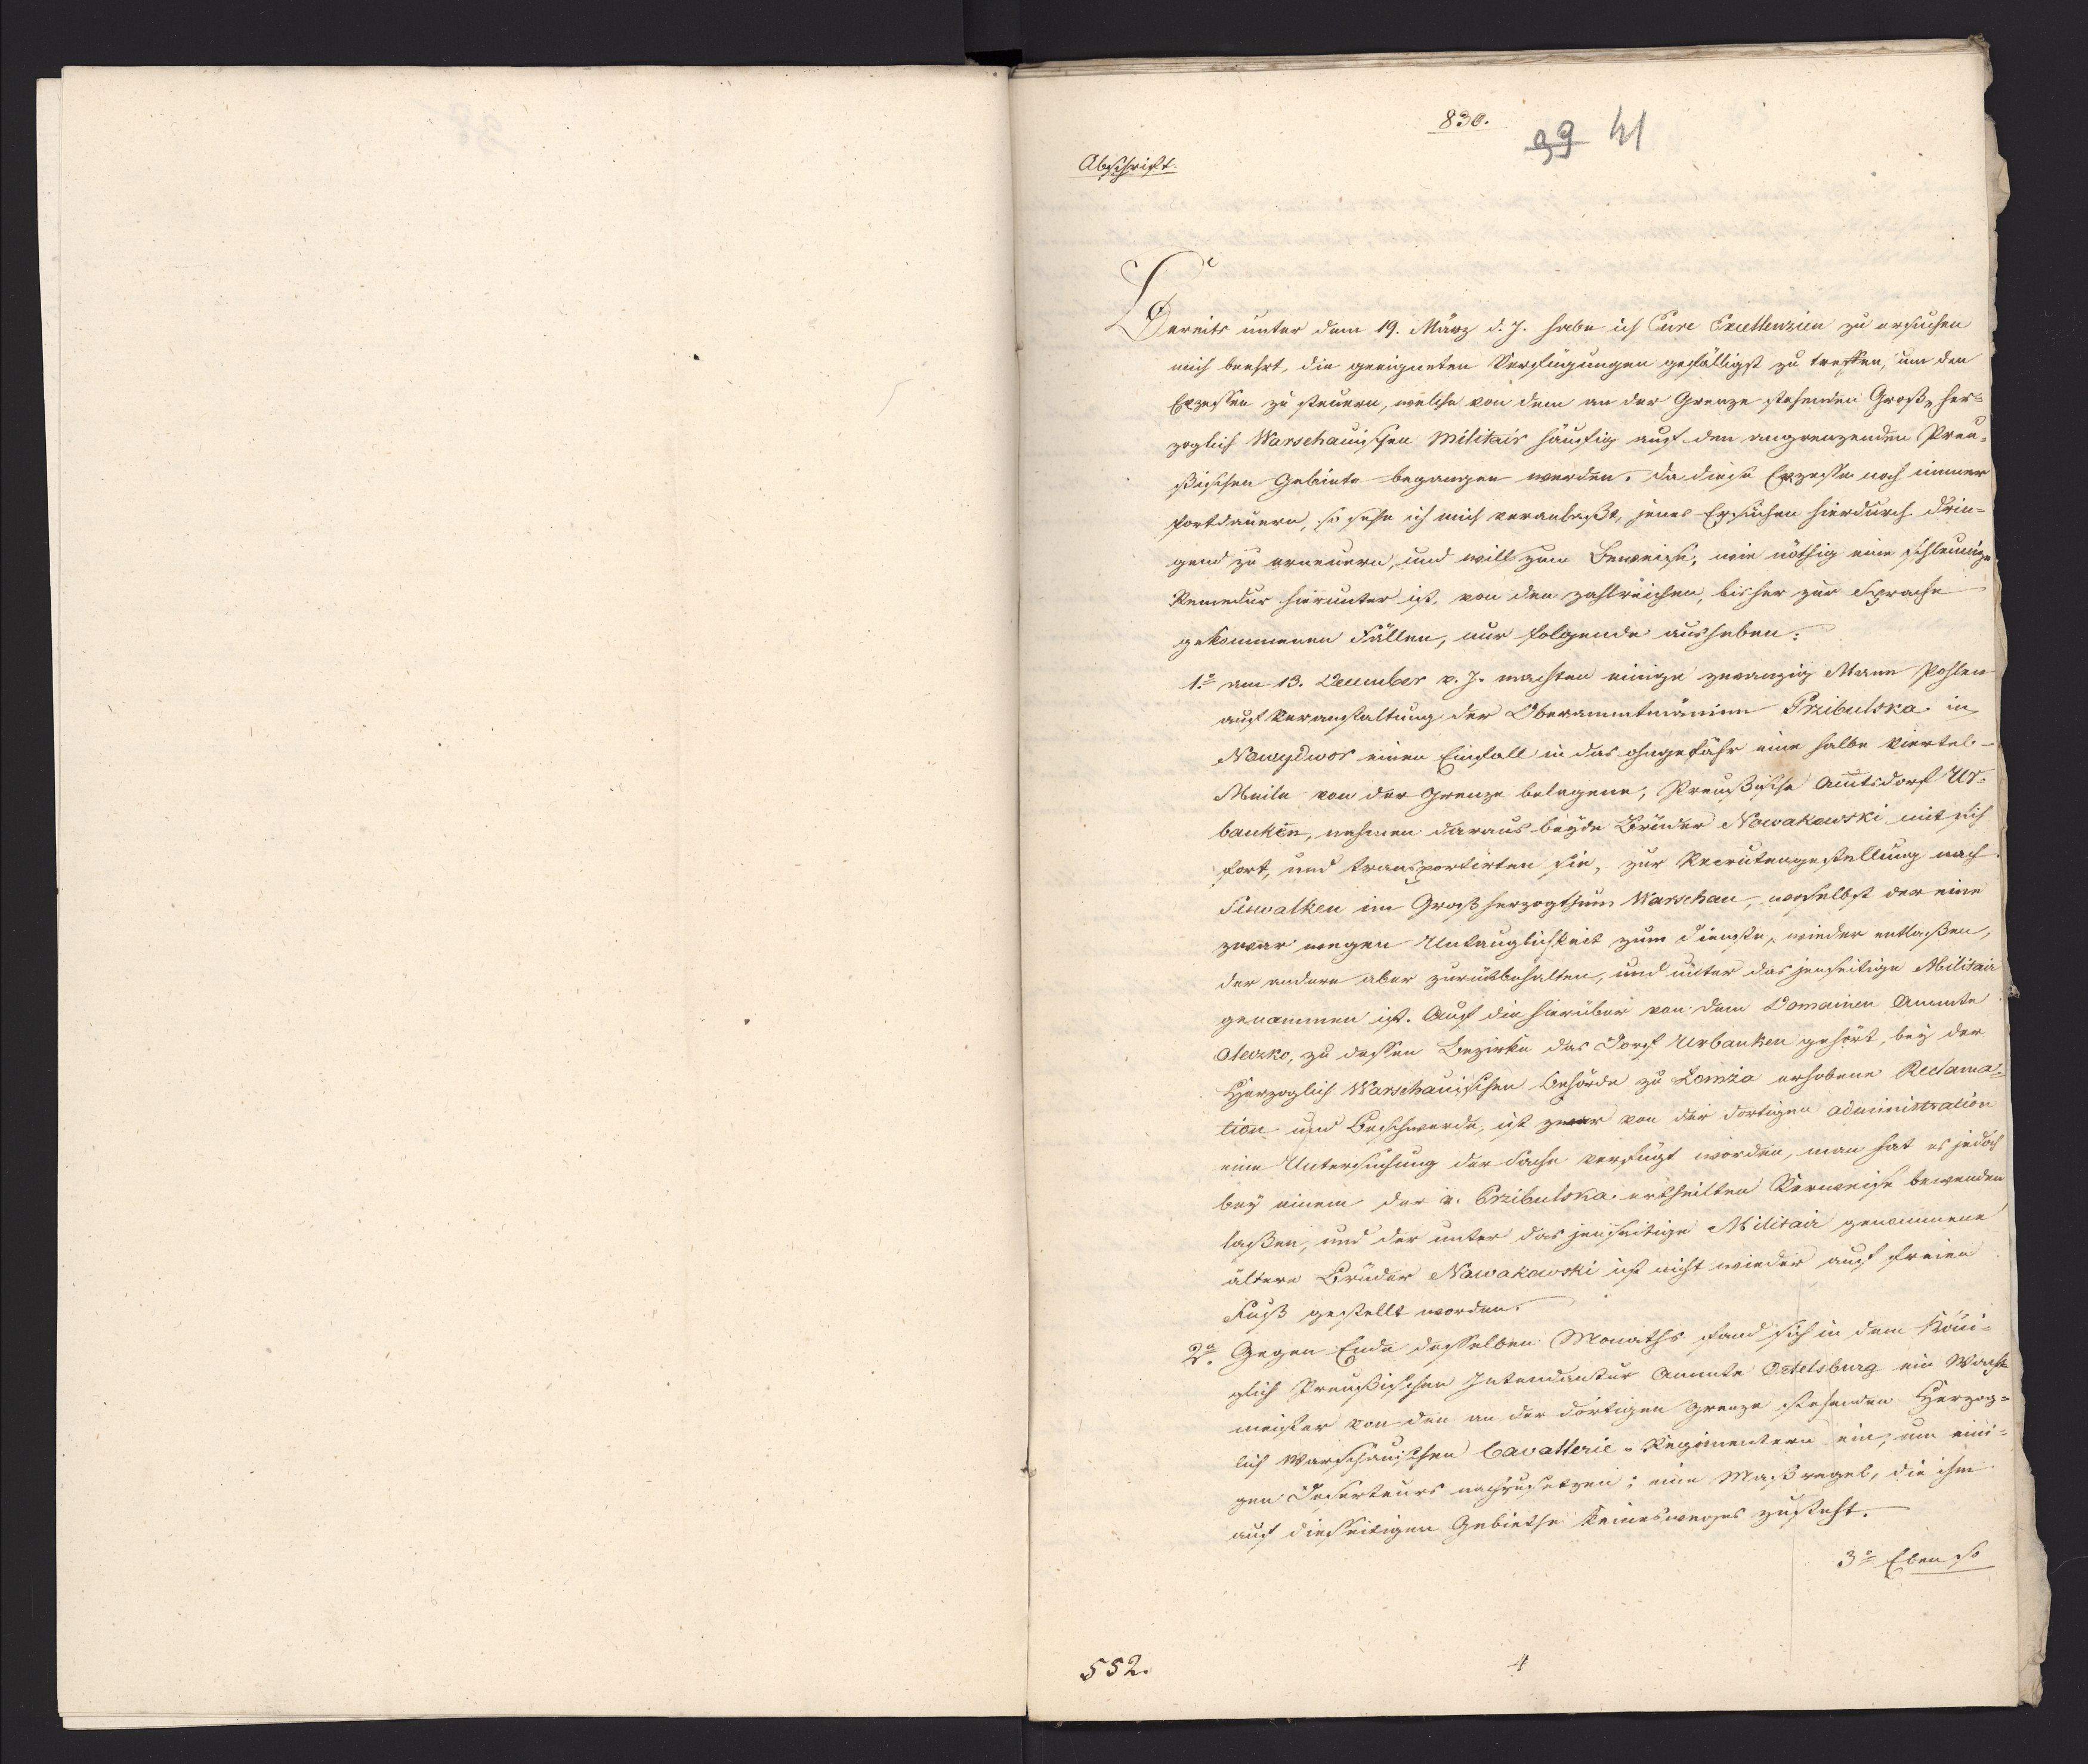 830.
39 41
Abschrift.
Bereits unter dem 19. März d. J. habe ich Eure Excellenzien zu ersuchen
mich beehrt, die geeigneten Verfügungen gefälligst zu treffen, um den
Exzessen zu steuern, welche von dem an der Grenze stehenden Groß-her=
zoglich Warschauischen Militair häufig auf den angrenzenden Preu=
ßischen Gebiete begangen werden. Da diese Exzesse noch immer
fortdauern, so sehe ich mich veranlaßt, jenes Ersuchen hierdurch drin=
gend zu erneuern, und will zum Beweise, wie nöthig eine schleunige
Remedur hierunter ist, von den zahlreichen, bisher zur Sprache
gekommenen Fällen, nur folgende ausheben:
1.o am 13. December v. J. machten einige zwanzig Mann Pohlen
auf Veranstaltung der Oberammtmännin Przibulska in
Nowydwor einen Einfall in das ohngefähr eine halbe Viertel-
Meile von der Grenze belegene, Preußische Amtsdorf Ur=
banken, nahmen daraus beyde Brüder Nowakowski mit sich
fort, und transportirten sie, zur Recrutengestellung nach
Suwalken im Großherzogthum Warschau, woselbst der eine
zwar wegen Untauglichkeit zum Dienste, wieder entlaßen,
der andere aber zurükbehalten, und unter das jenseitige Militair
genommen ist. Auf die hierüber von dem Domainen Ammte
Olezko, zu dessen Bezirke das Dorf Urbanken gehört, bey der
Herzoglich Warschauischen Behörde zu Lomza erhobene Reclama=
tion und Beschwerde, ist zwar von der dortigen administration
eine Untersuchung der Sache verfügt worden, man hat es jedoch
bey einem der v. Przibulska ertheilten Verweise bewenden
laßen, und der unter das jenseitige Militair genommene
ältere Bruder Nowakowski ist nicht wieder auf freien
Fuß gestellt worden.
2.o Gegen Ende desselben Monaths fand sich in dem Köni=
glich Preußischen Intendantur Ammte Ortelsburg ein Wacht
meister von den an der dortigen Grenze stehenden Herzog=
lich Warschauischen Cavallerie-Regimentern ein, um eini=
gen Deserteurs nachzusetzen; eine Maßregel, die ihm
auf diesseitigen Gebiethe keinesweges zusteht.
3o Eben so
552.
4